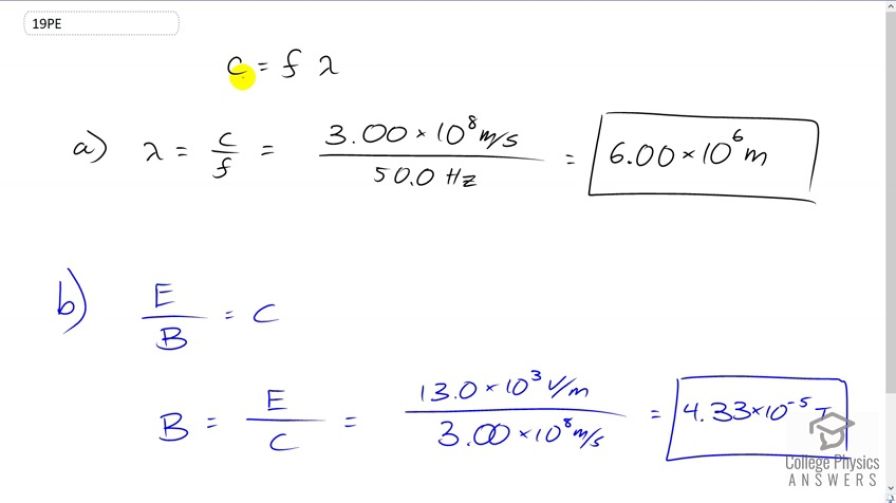 19PE
c = f λ
a) λ = c/f = 3.00 × 10⁸ m/s / 50.0 Hz = 6.00 × 10⁶ m
b) E/B = c
B = E/c = 13.0 × 10³ V/m / 3.00 × 10⁸ m/s = 4.33 × 10⁻⁵ T
College Physics
ANSWERS